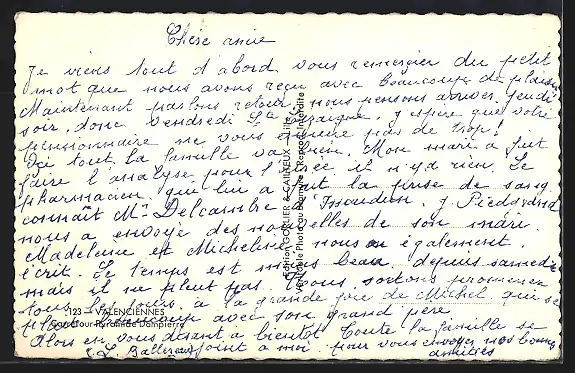 Chère amie
Je viens tout d'abord vous remercier du petit
mot que nous avons reçu avec beaucoup de plaisir
Maintenant parlons retour, nous pensons arriver jeudi
soir, donc vendredi j'espère que votre
pensionnaire ne vous ennuie pas de trop!
Ici tout la famille va bien. Mon mari a fait
faire l'analyse pour l'urée il n'y a rien. Le
pharmacien que lui a fait la prise de sang
connaît Mr Delcambre d'Issoudun. J. Piedsvand
nous a envoyé des nouvelles de son mari.
Madeleine et Micheline nous on également
écrit. Le temps est moins beau depuis samedi
mais il ne pleut pas. Nous sortons promener
tous les jours, à la grande joie de Michel qui se
plait beaucoup avec son grand père
Alors en vous disant à bientôt. Toute la famille se
joint à moi pour vous envoyer nos bonnes
amitiés
123 - VALENCIENNES
Carrefour Dampierre
Edition GORLIER & CAILTEUX - Lille
Véritable Photo au Bromure - Reprod. Interdite